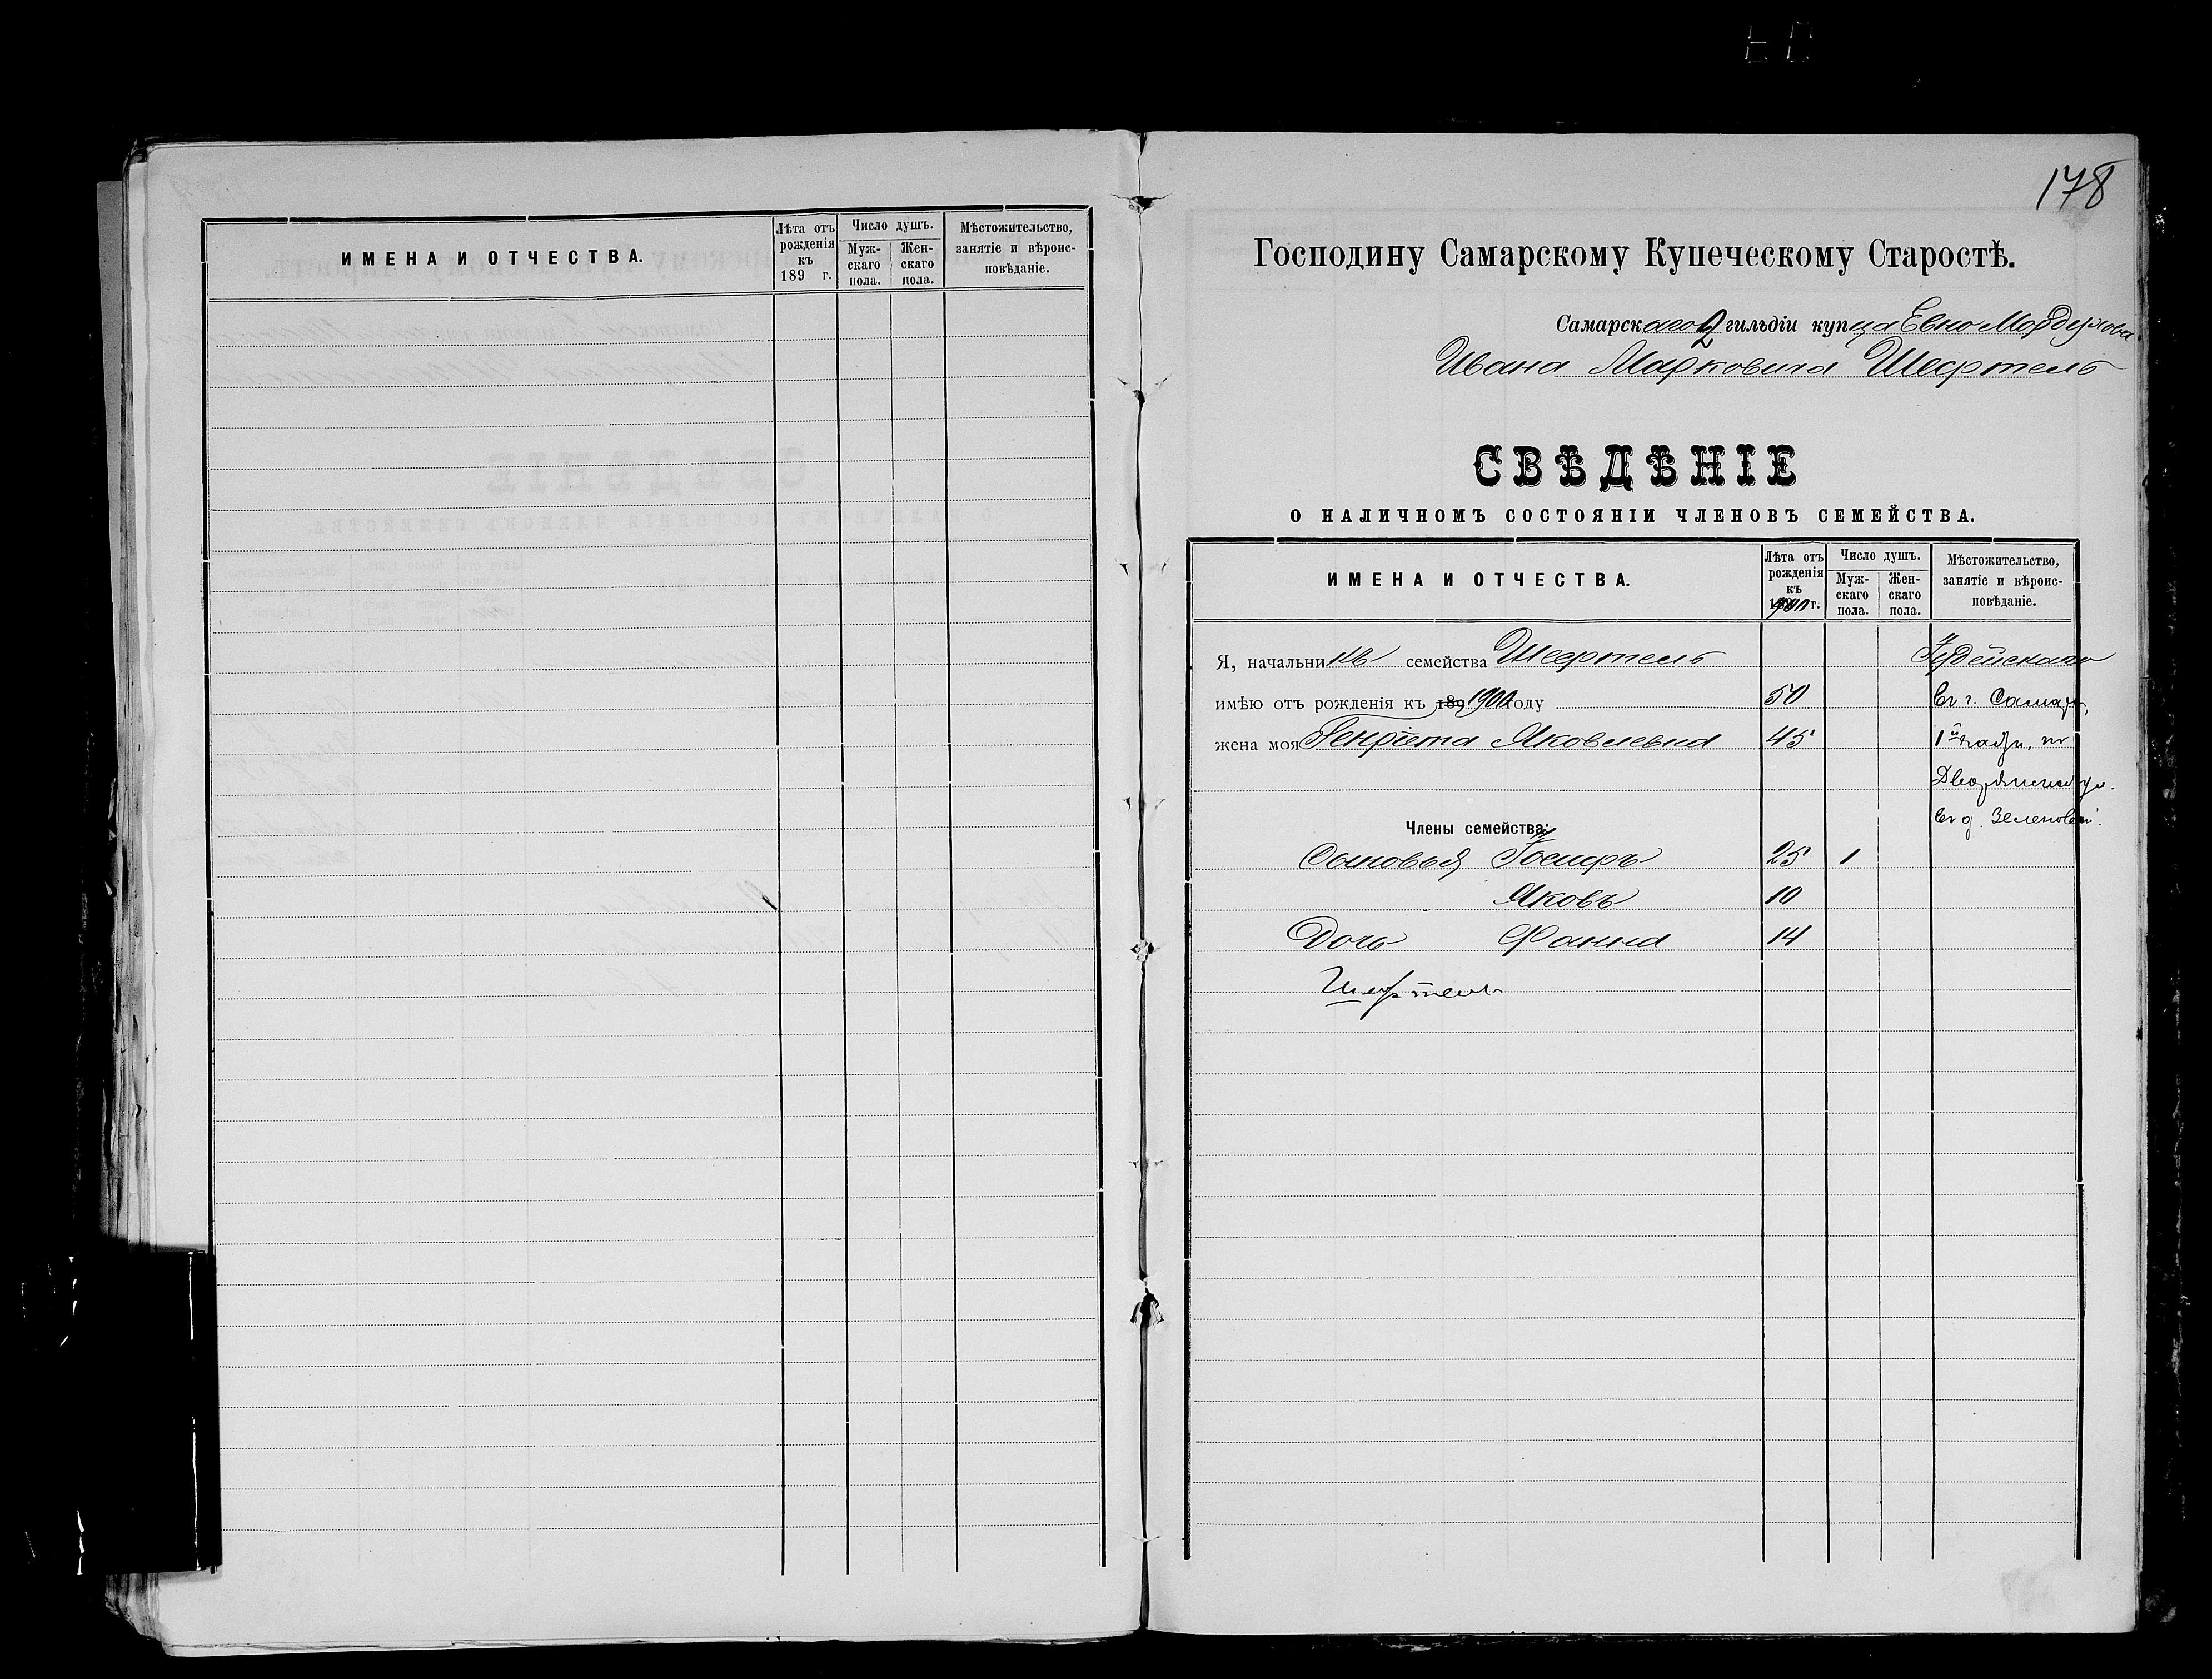 ИМЕНА И ОТЧЕСТВА.
Лѣта отъ рожденія къ 189 г.
Число душъ.
Муж-скаго пола.
Жен-скаго пола.
Мѣстожительство, занятіе и вѣроис-повѣданіе.
178
Господину Самарскому Купеческому Старостѣ.
Самарскаго 2 гильдіи купца Евно Мордухова
Ивана Марковича Шефтель
СВѢДѢНІЕ
О НАЛИЧНОМЪ СОСТОЯНІИ ЧЛЕНОВЪ СЕМЕЙСТВА.
ИМЕНА И ОТЧЕСТВА.
Лѣта отъ рожденія къ 1900 г.
Число душъ.
Муж-скаго пола.
Жен-скаго пола.
Мѣстожительство, занятіе и вѣроис-повѣданіе.
Я, начальникъ семейства Шефтель Іудейскаго
имѣю отъ рожденія къ 189 1900 году 50 Въ г. Самарѣ,
жена моя Генріета Яковлевна 45 1й части, по
Дворянской ул.
Члены семейства: въ д. Зеленовой.
Сыновья Іосифъ 25 1
Яковъ 10
Дочь Фанна 14
Шефтель